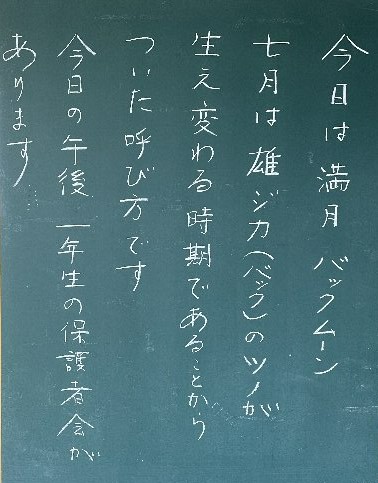 今日は満月 バックムーン
七月は雄ジカ(バック)のツノが
生え変わる時期であることから
ついた呼び方です
今日の午後 一年生の保護者会が
あります